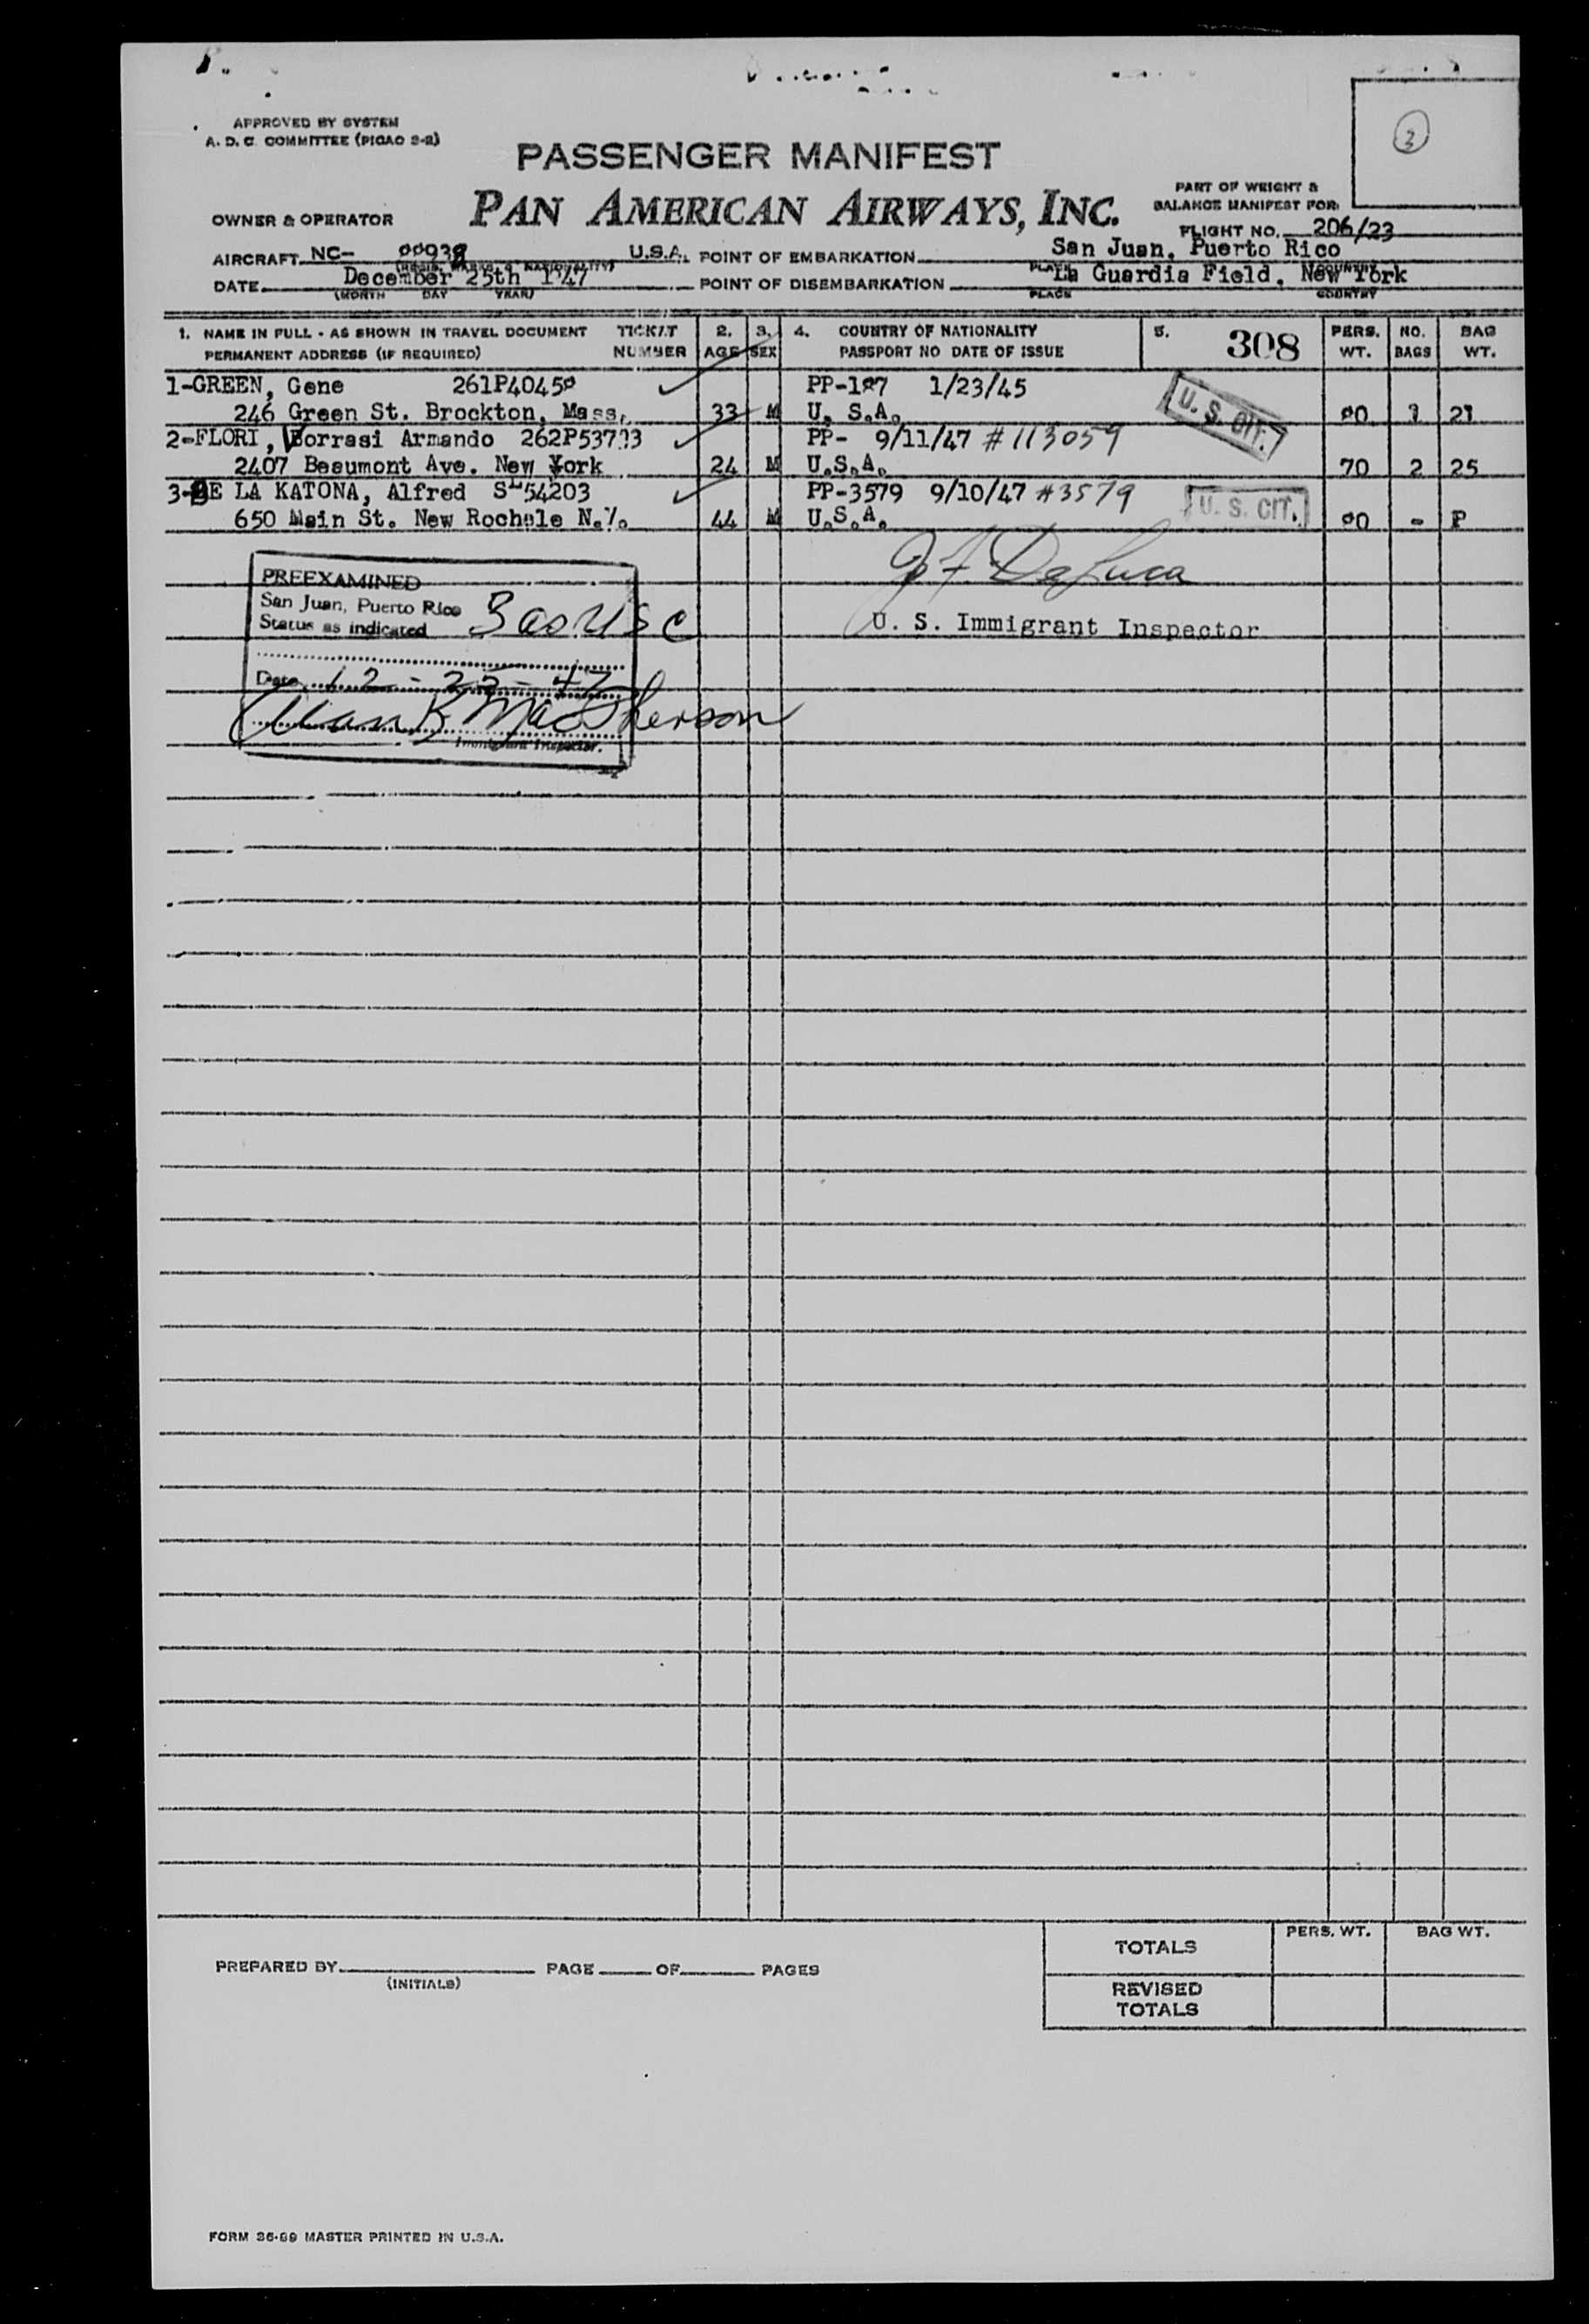 APPROVED BY SYSTEM
A. D. C. COMMITTEE (PICAO 2-2)
PASSENGER MANIFEST
PAN AMERICAN AIRWAYS, INC.
PART OF WEIGHT &
BALANCE MANIFEST FOR
OWNER & OPERATOR
FLIGHT NO. 206/23
AIRCRAFT NC- U.S.A. POINT OF EMBARKATION San Juan, Puerto Rico
DATE December 25th 1947 POINT OF DISEMBARKATION La Guardia Field, New York
(MONTH DAY YEAR) PLACE COUNTRY
1. NAME IN FULL - AS SHOWN IN TRAVEL DOCUMENT TICKET 2. 3. 4. COUNTRY OF NATIONALITY 5. 308 PERS. NO. BAG
PERMANENT ADDRESS (IF REQUIRED) NUMBER AGE SEX PASSPORT NO DATE OF ISSUE WT. BAGS WT.
1-GREEN, Gene PP-187 1/23/45
246 Green St. Brockton, Mass. 33 M U. S.A. U. S. CIT. 21
2-FLORI, Borrasi Armando PP- 9/11/47 # 113059
2407 Beaumont Ave. New York 24 M U.S.A. 70 2 25
3-DE LA KATONA, Alfred 54203 PP-3579 9/10/47 #3579
650 Main St. New Rochele N.Y. 44 M U.S.A. U. S. CIT. - P
J F DeLuca
U. S. Immigrant Inspector
PREEXAMINED
San Juan, Puerto Rico
Status as indicated 3 as USC
Date 12-25-47
Allan B MacPherson
Immigrant Inspector.
PREPARED BY PAGE OF PAGES
(INITIALS)
TOTALS PERS. WT. BAG WT.
REVISED
TOTALS
FORM 36-99 MASTER PRINTED IN U.S.A.